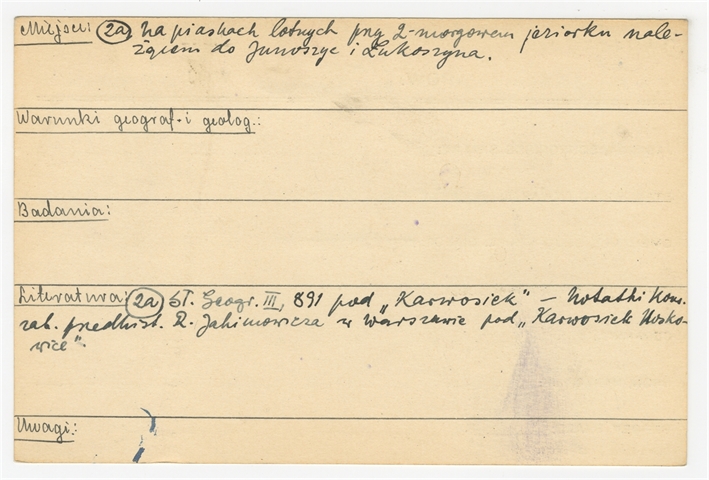 Miejsce: 2a) na piaskach lotnych przy 2-morgowem jeziorku nale-
żącem do Junoszyc i Łukoszyna.
Warunki geograf. i geolog.:
Badania:
Literatura: 2a) Sł. Geogr. III, 891 pod „Karwosiek" – Notatki Kons.
zab. predhist. R. Jakimowicza w Warszawie pod „Karwosiek Nosko-
wice".
Uwagi: